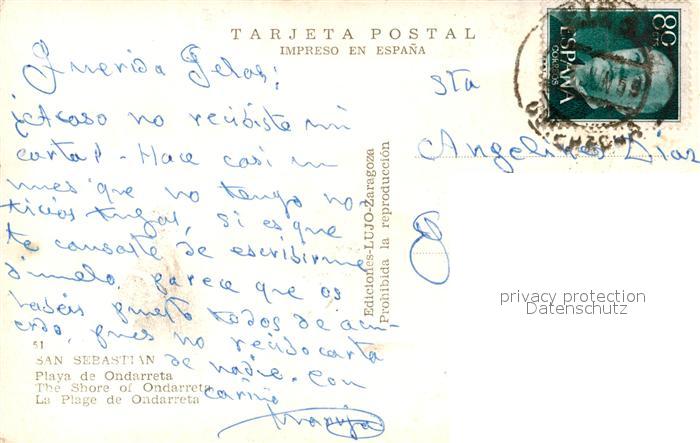 TARJETA POSTAL
IMPRESO EN ESPAÑA
Querida Gelas:
¿Acaso no recibiste mi
carta? - Hace casi un
mes que no tengo no-
ticias tuyas, si es que
te cansaste de escribirme
dímelo. parece que os
habéis puesto todos de acu-
erdo, pues no recibo carta
de nadie. Con
cariño
Maruja
51
SAN SEBASTIAN
Playa de Ondarreta
The Shore of Ondarreta
La Plage de Ondarreta
Ediciones-LUJO-Zaragoza
Prohibida la reproducción
Sta
Angelines Díaz
80
CTS
ESPAÑA
CORREOS
privacy protection
Datenschutz